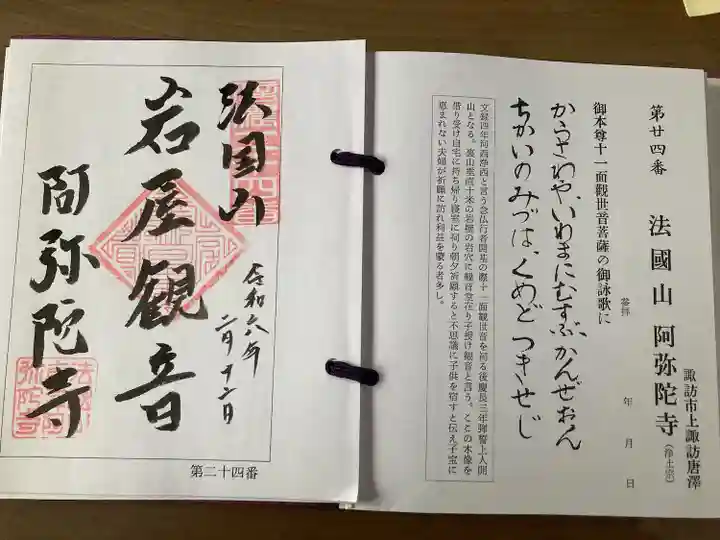 第廿四番 法國山 阿弥陀寺
諏訪市上諏訪唐澤
(浄土宗)
参拝 年 月 日
御本尊十一面觀世音菩薩の御詠歌に
からさわや、いわまにむすぶ、かんぜおん
ちかいのみづは、くめどつきせじ
文録四年河西浄西と言う念仏行者開基の際十一面観世音を祠る後慶長三年弾誓上人開
山となる。裏山垂直十米の岩壁の岩穴に観音堂在り子授け観音と言う。ここの木像を
借り受け自宅に持ち帰り寝室に祠り朝夕祈願すると不思議に子供を宿すと伝え子宝に
恵まれない夫婦が祈願に訪れ利益を慶る者多し。
法国山
令和六年
二月十二日
岩屋観音
阿弥陀寺
第二十四番